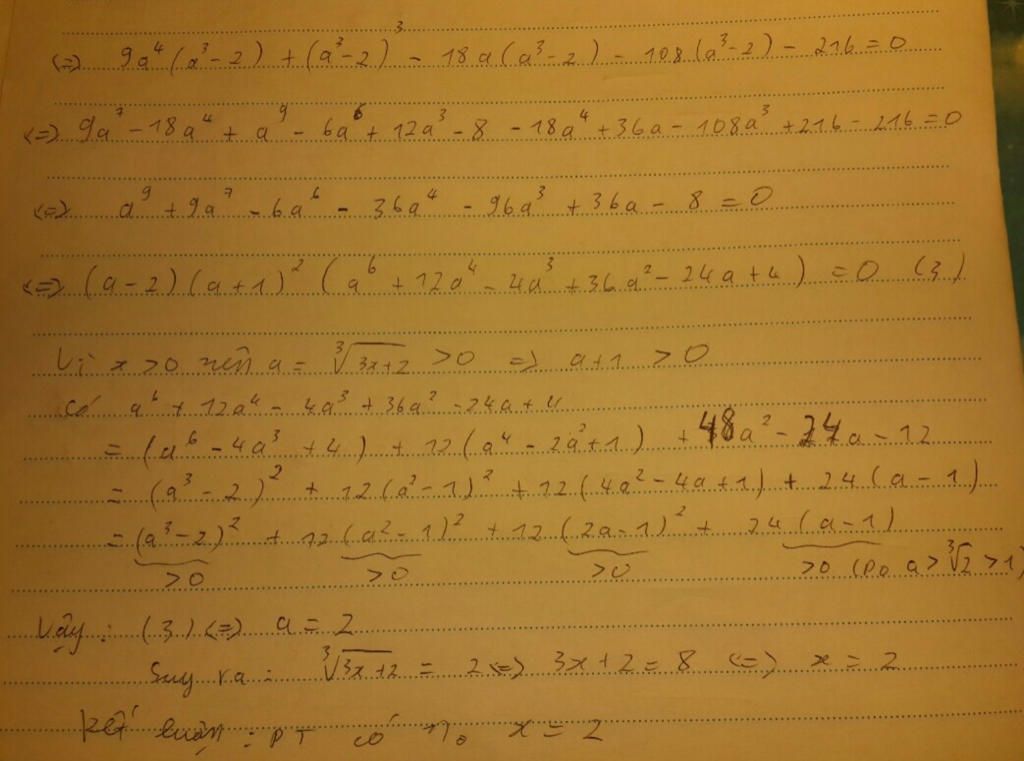 (=) 9a⁴(a³-2) + (a³-2)³ - 18a(a³-2) - 108(a³-2) - 216 = 0
(=) 9a⁷ - 18a⁴ + a⁹ - 6a⁶ + 12a³ - 8 - 18a⁴ + 36a - 108a³ + 216 - 216 = 0
(=) a⁹ + 9a⁷ - 6a⁶ - 36a⁴ - 96a³ + 36a - 8 = 0
(=) (a-2)(a+1)² (a⁶ + 12a⁴ - 4a³ + 36a² - 24a + 4) = 0 (3)
Vì x > 0 nên a = ∛(3x+2) > 0 => a+1 > 0
có a⁶ + 12a⁴ - 4a³ + 36a² - 24a + 4
= (a⁶ - 4a³ + 4) + 12(a⁴ - 2a² + 1) + 48a² - 24a - 12
= (a³ - 2)² + 12(a² - 1)² + 12(4a² - 4a + 1) + 24(a - 1)
= (a³ - 2)² + 12(a² - 1)² + 12(2a - 1)² + 24(a - 1)
>0 >0 >0 >0 (Do a > ∛2 > 1)
Vậy : (3) (=) a = 2
Suy ra : ∛(3x+2) = 2 (=) 3x + 2 = 8 (=) x = 2
Kết luận : PT có no x = 2